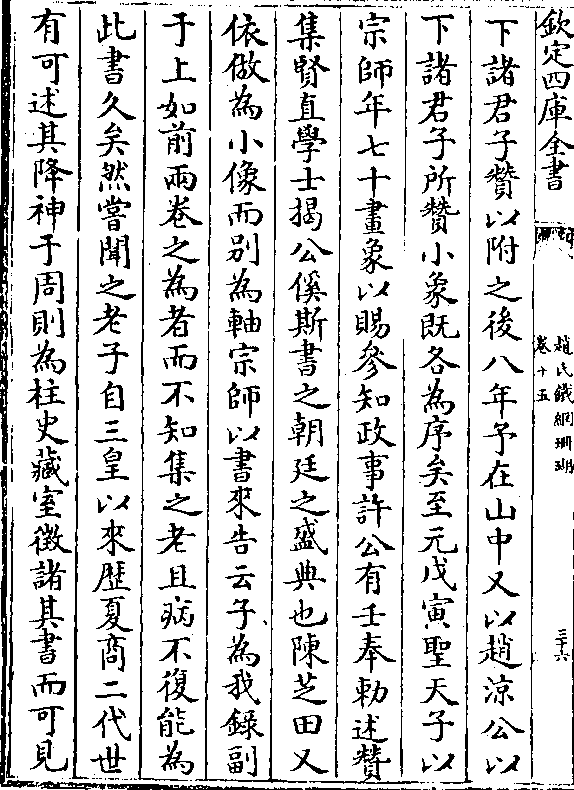 欽定四庫全書
趙氏鐵網珊瑚
卷十五
三十六
下諸君子贊以附之後八年予在山中又以趙涼公以
下諸君子所贊小象既各為序矣至元戊寅聖天子以
宗師年七十畫象以賜參知政事許公有壬奉勅述贊
集賢直學士揭公傒斯書之朝廷之盛典也陳芝田又
依倣為小像而别為軸宗師以書來告云子為我錄副
于上如前兩卷之為者而不知集之老且病不復能為
此書久矣然嘗聞之老子自三皇以來歴夏商二代世
有可述其降神于周則為柱史藏室徵諸其書而可見